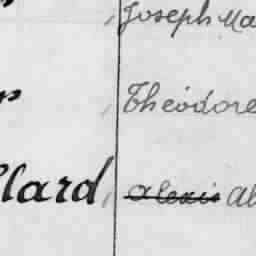 Joseph Ma
Théodore
llard, Alexis Al